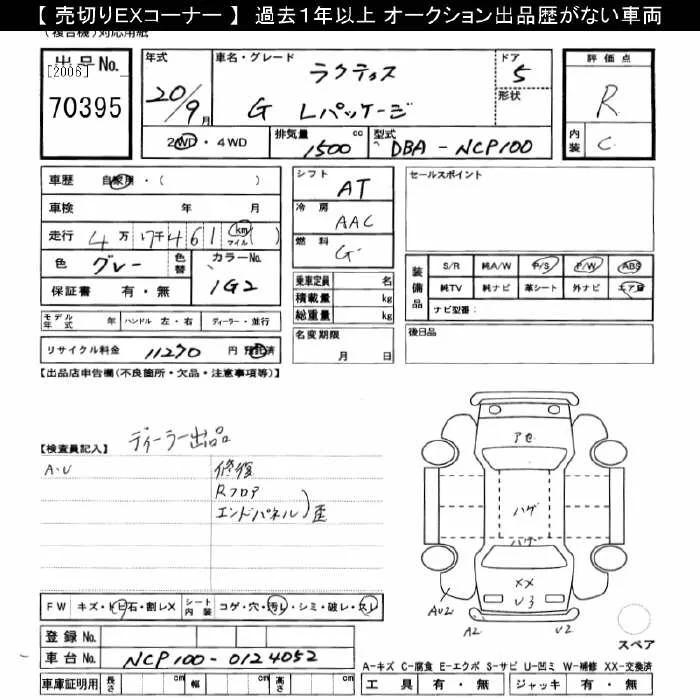 【 売切りEXコーナー 】 過去1年以上 オークション出品歴がない車両
(複合機)対応用紙
出品No.
[2006]
70395
年式
20/9月
車名・グレード
ラクティス
G Lパッケージ
ドア
5
形状
評価点
R
内装
C
2WD・4WD
排気量
1500 cc
型式
DBA-NCP100
車歴 自家用・( )
車検 年 月
走行 4万 17千461 km マイル ( )
色 グレー 色替 カラーNo. 1G2
保証書 有・無
シフト AT
冷房 AAC
燃料 G
乗車定員 名
積載量 kg
総重量 kg
セールスポイント
装備品
S/R 純A/W P/S P/W ABS
純TV 純ナビ 革シート 外ナビ エアB
ナビ型番:
モデル年式 年 ハンドル 左・右 ディーラー・並行
リサイクル料金 11270 円 預託済
名変期限
月 日
後日品
【出品店申告欄(不良箇所・欠品・注意事項等)】
【検査員記入】
ディーラー出品
A・U
修復
Rフロア
エンドパネル
歪
アセ
ハゲ
ハゲ
XX
U3
AU2
A2
U2
FW キズ・トビ石・割レX シート内装 コゲ・穴・汚レ・シミ・破レ・スレ
登録No.
車台No. NCP100-0124052
車庫証明用 長さ cm 幅 cm 高さ cm
スペア
A-キズ C-腐食 E-エクボ S-サビ U-凹ミ W-補修 XX-交換済
工具 有・無 ジャッキ 有・無